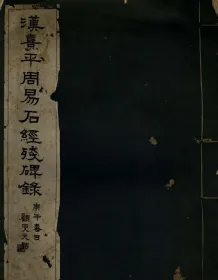 漢熹平周易石經殘碑錄
庚午春日